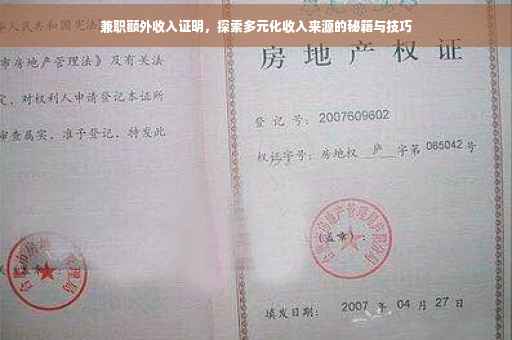 兼职额外收入证明，探索多元化收入来源的秘籍与技巧
华人民共和国宪法
市房地产管理法》及有关法
定，对权利人申请登记本证所
审查属实，准予登记，特发此
房地产权证
登记号：2007609602
权证字号：房地权 庐 字第 085042 号
(盖章)：
填发日期：2007 年 04 月 27 日